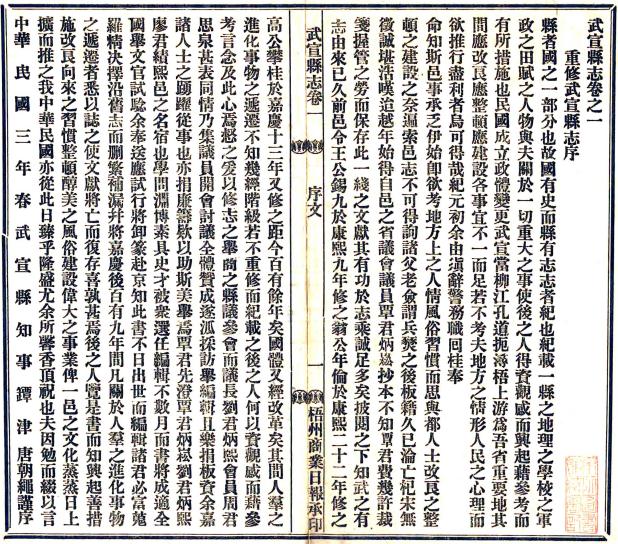 武宣縣志卷之一
重修武宣縣志序
縣者國之一部分也故國有史而縣有志志者紀也紀載一縣之地理之學校之軍
政之田賦之人物與夫關於一切重大之事使後之人得資觀感而興起藉參考而
有所措施也民國成立政體變更武宣當柳江孔道扼潯梧上游爲吾省重要地其
間應改良應整頓應建設各事宜不一而足若不考夫地方之情形人民之心理而
欲推行盡利者烏可得哉紀元初余由滇辭警務職回桂奉
命知斯邑事承乏伊始卽欲考地方上之人情風俗習慣而思與都人士改良之整
頓之建設之奈遍索邑志不可得詢諸父老僉謂兵燹之後板籍久已淪亡杞宋無
徵誠堪浩嘆迨越年始得自邑之省議會議員覃君炳崧抄本不知覃君費幾許裁
箋握管之勞而保存此一綫之文獻其有功於志乘誠足多矣披閱之下知武之有
志由來已久前邑令王公錫九於康熙九年修之翁公年倫於康熙二十二年修之
武宣縣志卷一
序文
一
梧州商業日報承印
高公攀桂於嘉慶十三年又修之距今百有餘年矣國體又經改革矣其間人羣之
進化事物之遞遷不知幾經階級若不重修而紀載之後之人何以資觀感而藉參
考言念及此心焉慼之爰以修志之舉商之縣議參會而議長劉君炳熙會員周君
思泉甚表同情乃集議員開會討議全體贊成遂派採訪舉編輯且樂捐板資余嘉
諸人士之踴躍從事也亦捐廉籌欵以助斯美舉焉覃君先澄覃君炳崧劉君炳熙
廖君績熙邑之名宿也學問淵博素具史才被衆選任編輯不數月而書將成適全
國舉文官試騐余奉送應試行將卸篆赴京知此書不日出世而編輯諸君必富蒐
羅精決擇沿舊志而刪繁補漏幷將嘉慶後百有九年間凡關於人羣之進化事物
之遞遷者悉以誌之使文獻將亡而復存喜孰甚焉後之人覽是書而知興起善措
施改良向來之習慣整頓醇美之風俗建設偉大之事業俾一邑之文化蒸蒸日上
擴而推之我中華民國亦從此日臻乎隆盛尤余所馨香頂祝也夫因勉而綴以言
中華民國三年春武宣縣知事譚津唐朝繩謹序